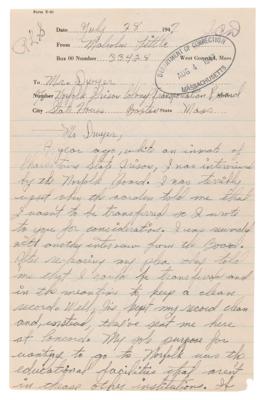 Form E-61
Date July 28 1947
From Malcolm Little
Number 33428 West Concord, Mass.
DEPARTMENT OF CORRECTION
AUG 4
MASSACHUSETTS
To Mr. Dwyer
Number Norfolk Prison Colony Transfer Board
City State House Boston State Mass.
Mr. Dwyer,
A year ago, while an inmate of
Charlestown State Prison, I was interviewed
by the Norfolk Board. I was terribly
upset when the warden told me that
I wasn't to be transferred so I wrote
to you for consideration. I was
another interview from the Board.
After my plea they told
me that I could be transferred and
in the meantime to keep a clean
record. Well, I've kept my record clean
and, instead, they've sent me here
to Concord. My sole purpose for
wanting to go to Norfolk was the
educational facilities that aren't
in these other institution. If